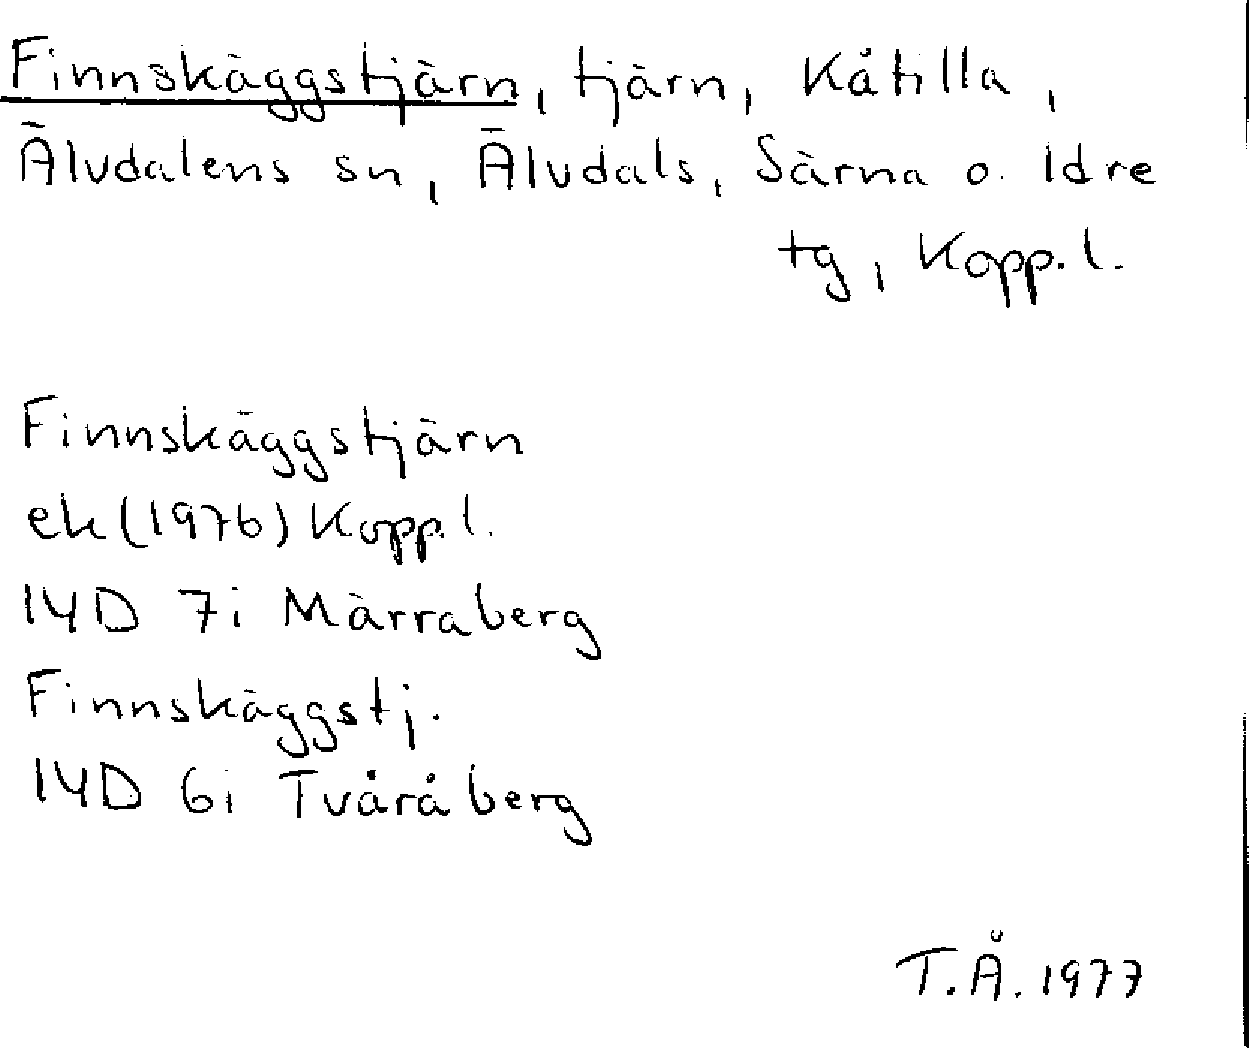 Finnskäggstjärn, tjärn, Kåtilla,
Älvdalens sn, Älvdals, Särna o. Idre
tg, Kopp. l.
Finnskäggstjärn
ek (1976) Kopp. l.
14D 7i Märraberg
Finnskäggstj.
14D 6i Tvåråberg
T.Å. 1977